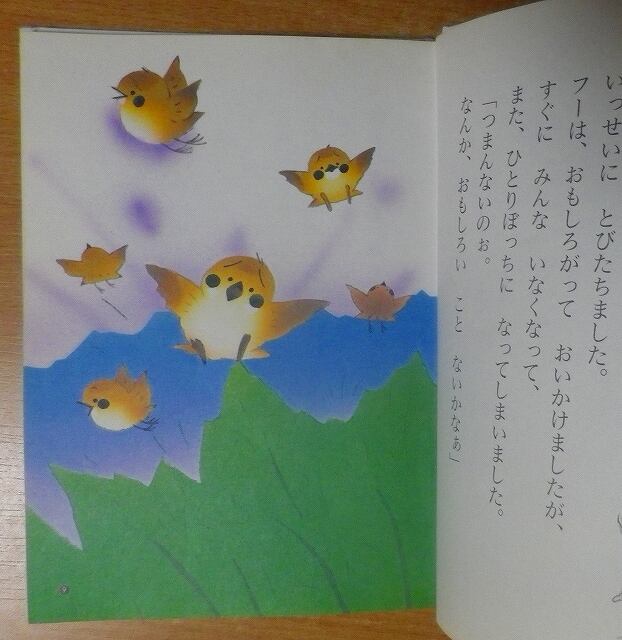 いっせいに とびたちました。
フーは、おもしろがって おいかけましたが、
すぐに みんな いなくなって、
また、ひとりぼっちに なってしまいました。
「つまんないのぉ。
なんか、おもしろい こと ないかなぁ」
9